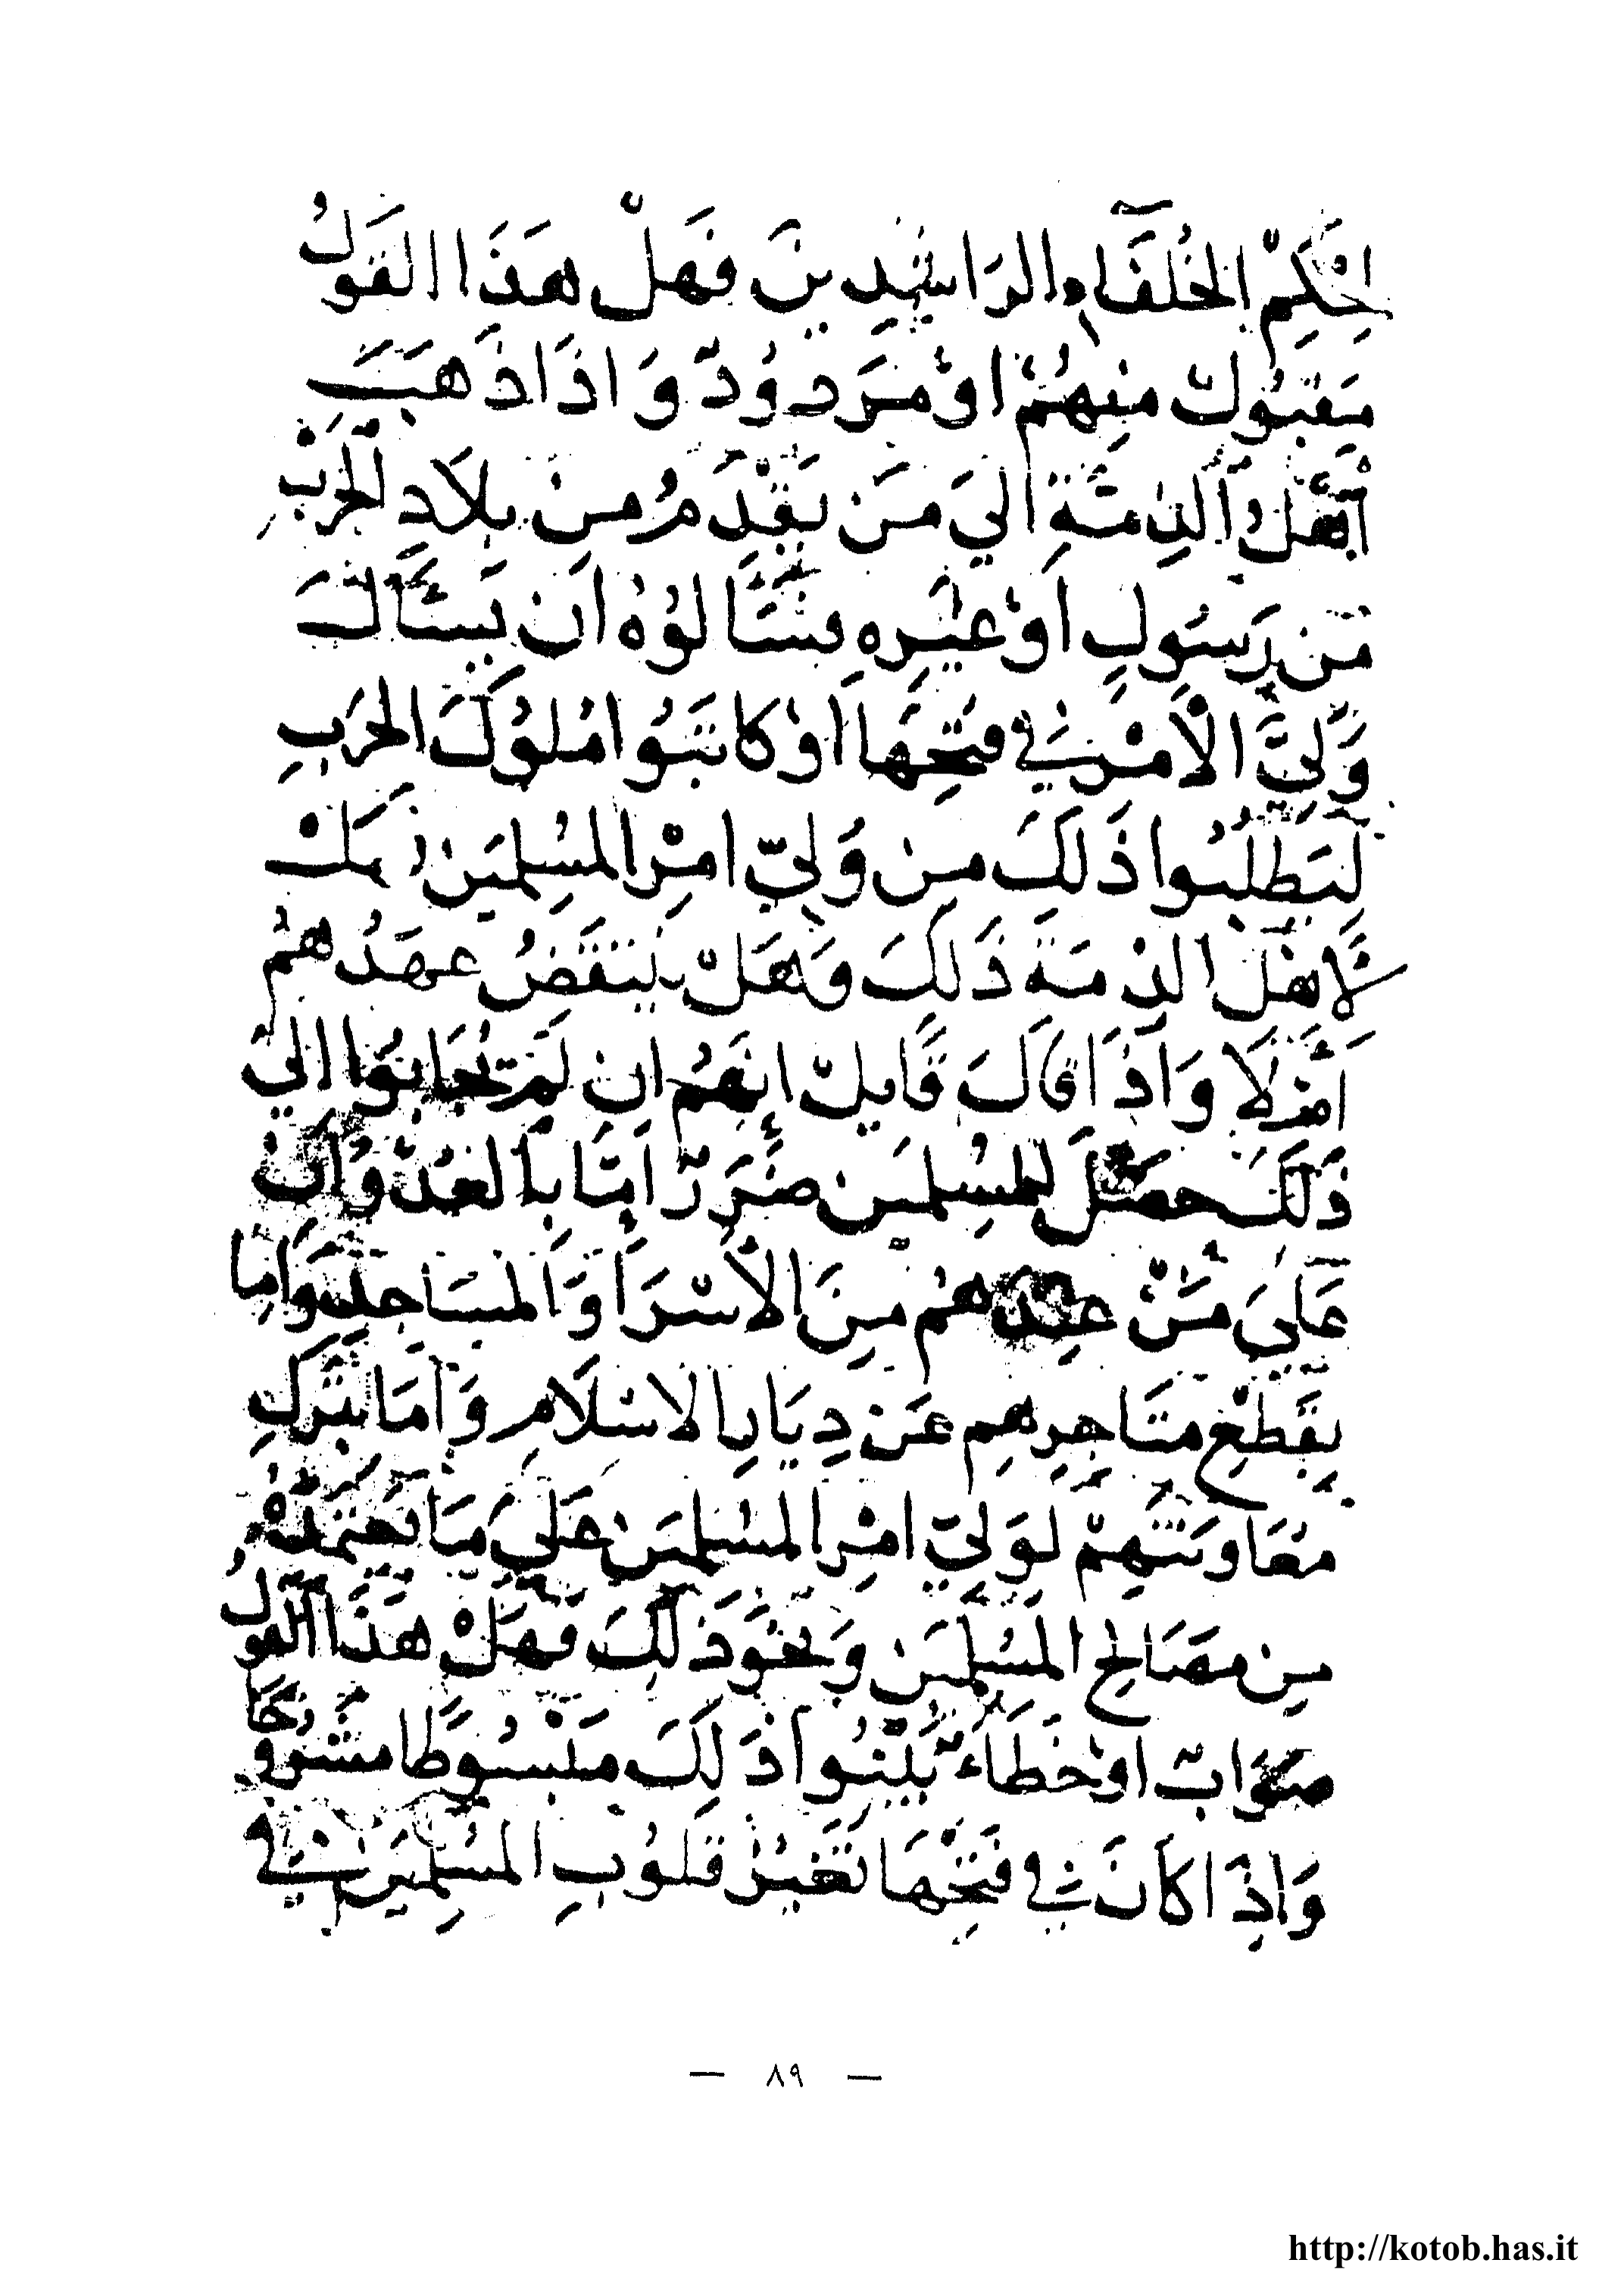 لِحُكْمِ الخُلَفَآءِ الرَاشِدِينَ فَهَلْ هَذَا القَوْلُ
مَقبُولٌ مِنهُمْ اوْ مَرَدوُدٌ وَاذَا ذَهَبَ
أهْلُ الذِمَّةِ اليَ مَن يَقْدَمُ مِن بِلاَدِ الحَرْبِ
مَن رَسُولٍ اَوْ غَيْرِهِ يسَّالوُهُ ان يَسْئَالَ
وَلِيَّ الأمْرِ في فتحِهَا اوْ كاتَبُوا مُلوُكَ الحَربِ
لَيَطلُبُوا ذَلكَ مِن وَليّ امْرِ المسُلِمَين فهَلْ
لاهْلِ الذمَة ذَلكَ وَهَلْ يَنتَقَضُ عهَدُهُم
أمْ لَا وَاذَا قَالَ قَايلْ انهَمُ ان لَمْ يُجَابوُا اليَ
ذَلكَ حصَلَ للمسُلمَين ضَرَرٌ اِمَّا بالعُدْوَان
عَليَ مَنْ عِندهُم مِنَ الأسْرَا وَالمسَاجِد وَامِا
بِقَطعْ مَتَاجِرِهِم عَن دِيَارِ الاسْلَامِ وَامَا بتَركِ
مُعَاوَنَتهِمْ لوَليّ امْرِ المسُلِمَين عَليَ مَا يَعتمَدُهُ
مِن مصَالحِ المسُلِمَين وَنحوَ ذَلكَ فهَلْ هَذَا القَولُ
صَوَابٌ اوْ خَطَاءٌ بَيّنُوا ذَلِكَ مَبْسُوطًا مَشرُوحًا
وَاذَا كَانَ في فَتحْهَا تَغَيرُ قلوُبِ المسُلِمَين في
— ٨٩ —
http://kotob.has.it